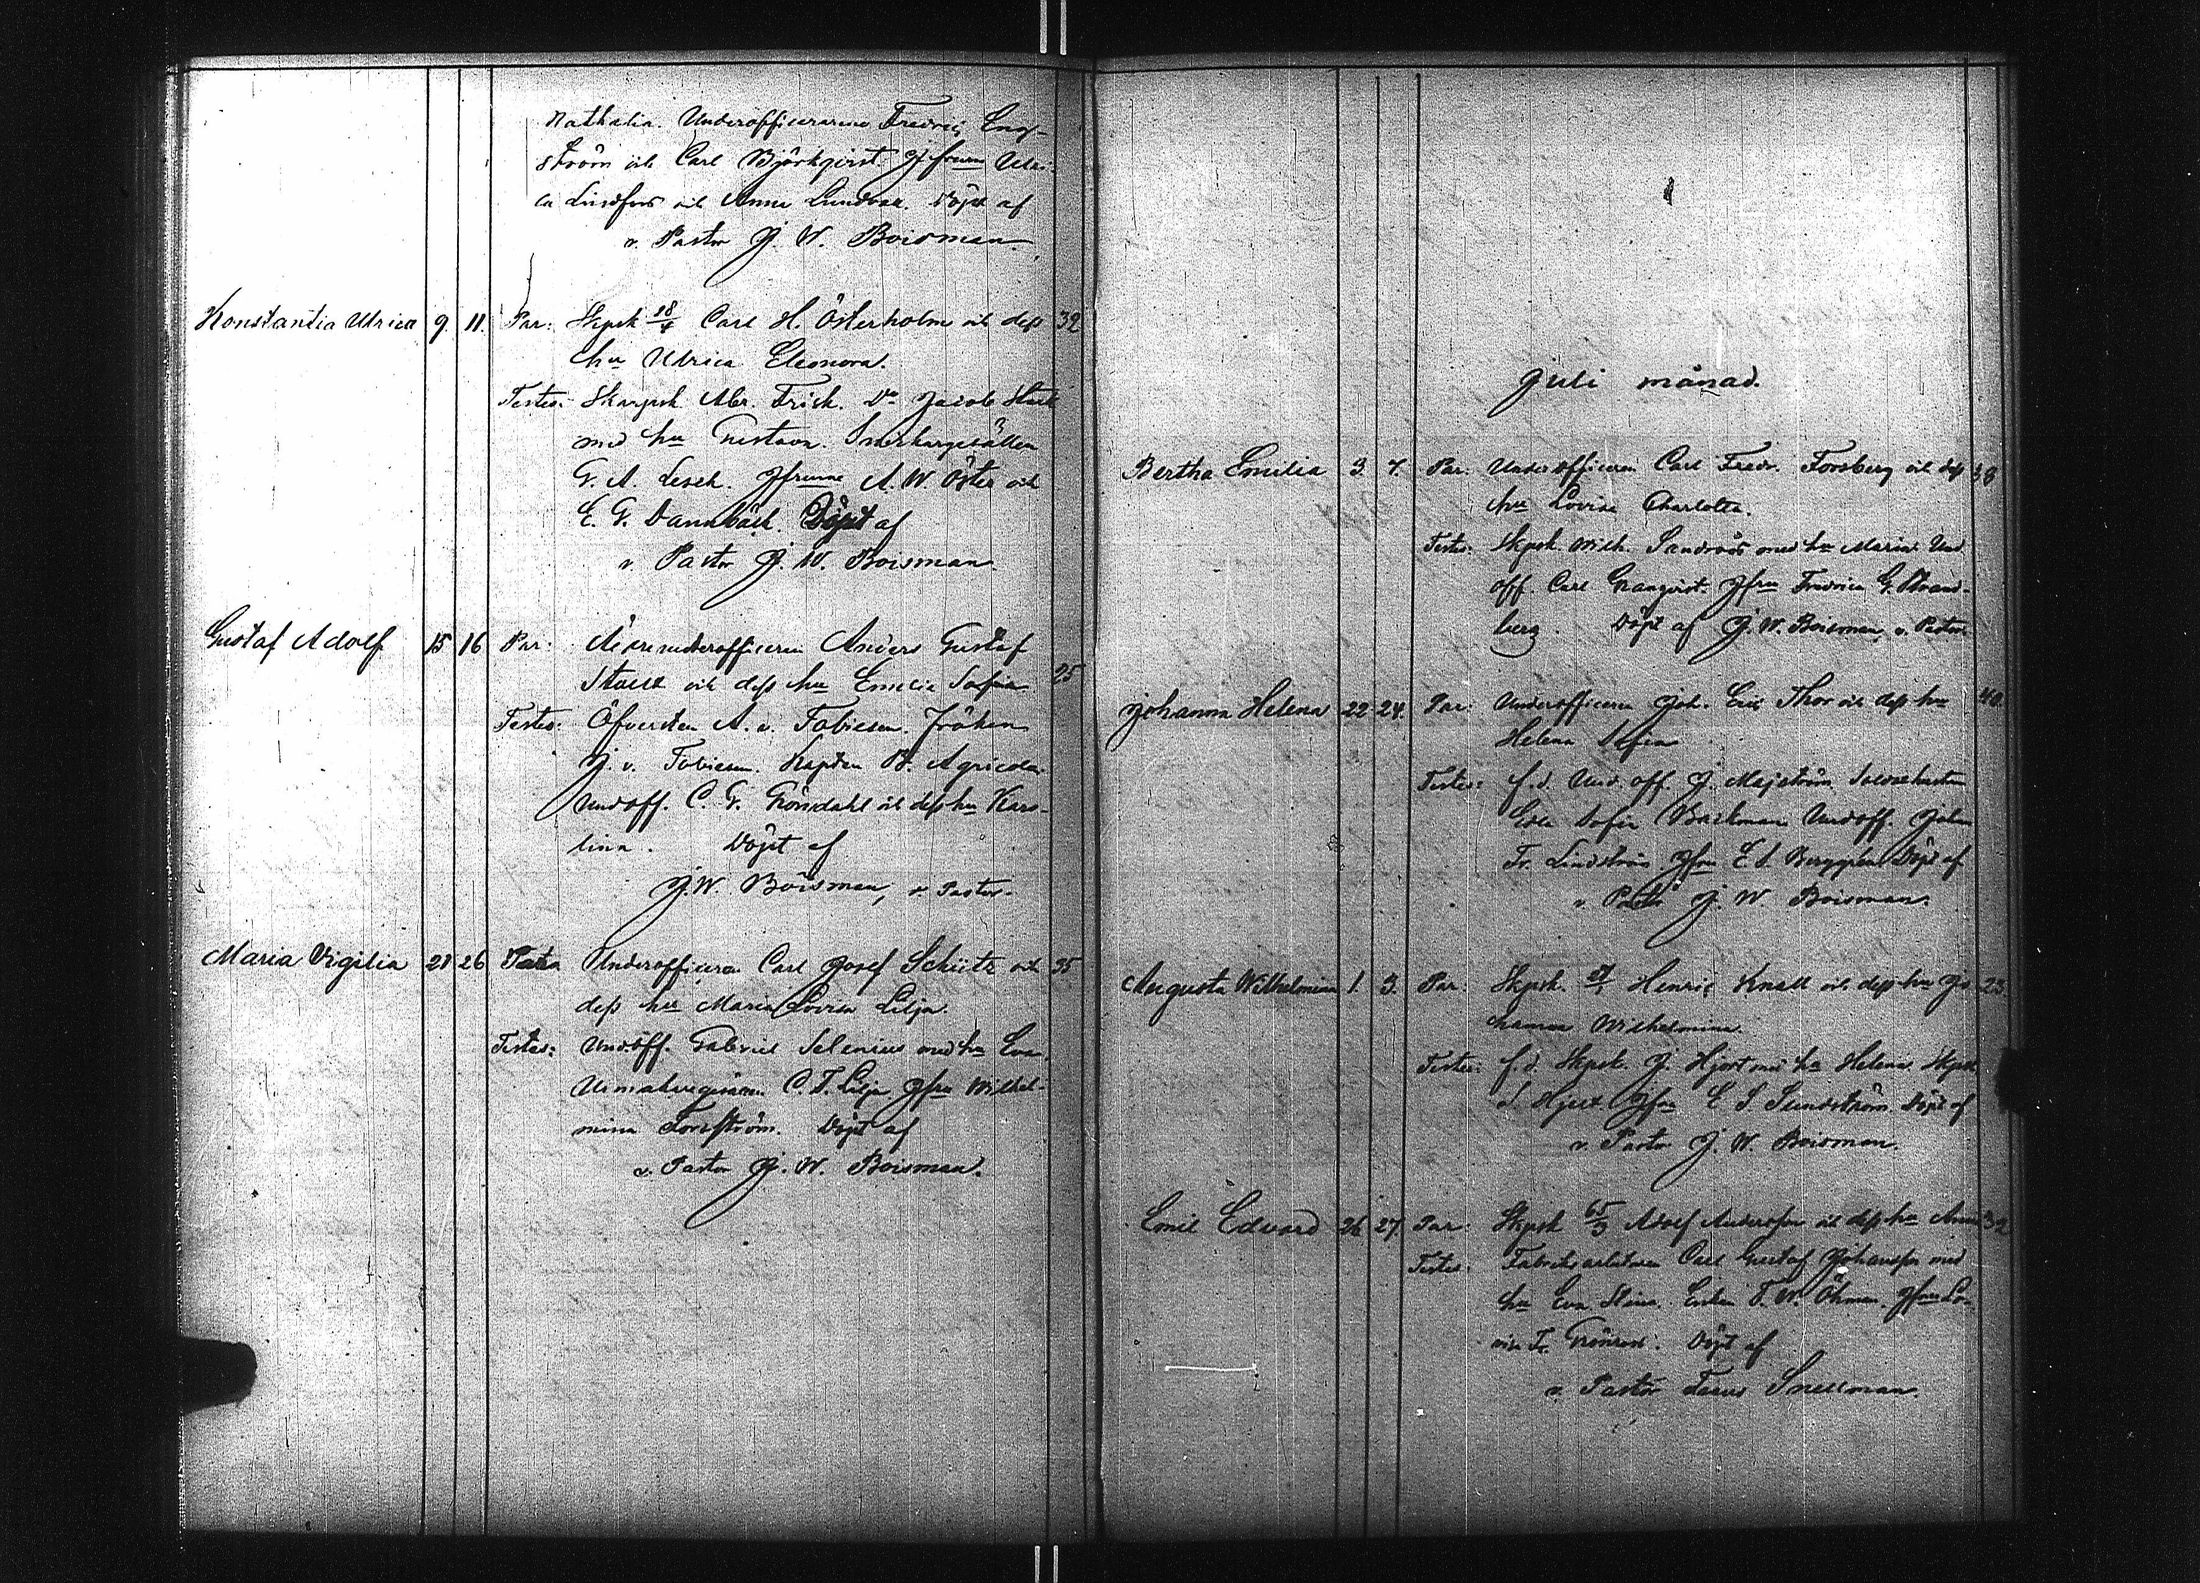 Nathalia. Underofficerarne Fredric Eng-
ström och Carl Björkqvist. Jfrurn Ulri-
ca Lindfors och Anna Lundvar. Döpt af
v. Pastor J. W. Boisman.
Konstantia Ulrica 9. 11. Par: Skpsk 18/4 Carl H. Österholm och dess 32
hu Ulrica Eleonora.
Testes: Skarpsk. Abr. Frisk. Do Jacob Stark
med hu Gustava. Snickargesällen
G. A. Lesch. Jfrurne A. W. Öster och
E. G. Dannbäck. Döpt af
v. Pastor J. W. Boisman
Gustaf Adolf 15 16 Par: underofficeren Anders Gustaf
och dess hu Emelie Sofia 25
Testes: Öfversten A. v. Tobiesen. Fröken
J. v. Tobiesen. Kapten B. Agricola.
Undoff. C. G. Gröndahl och dess hu Karo-
lina. Döpt af
J. W. Boisman, v. Pastor.
Maria Vigilia 21 26 Par Underofficeren Carl Josef Schütz och 35
dess hu Maria Lovisa Lilja.
Testes: Undoff. Gabriel Selenius med hu Eva.
C. F. Lilja Jfru Wilhel-
mina Forsström. Döpt af
v. Pastor J. W. Boisman.
Juli månad.
Bertha Emilia 3. 7. Par: Underofficeren Carl Fredr. Forsberg och dess 38
hu Lovisa Charlotta.
Testes: Skpsk. Wilh. Sandroos med hu Maria Und
off. Carl Granqvist. Jfru Fredrica G. Strand-
berg. Döpt af J. W. Boisman, v. Pastor
Johanna Helena 22 24. Par: Underofficeren Joh. Eric Thor och dess hu 40.
Helena Sofia
Testes: f. d. Und. off. J. Majström Soldathustrun
Sofia Backman Undoff. Johan
Fr. Lindström Jfru E. S. Berggren Döpt af
v. Pastor J. W. Boisman.
Augusta Wilhelmina 1. 3. Par: Skpsk. Henric Knall och dess hu Jo- 23.
hanna Wilhelmina.
Testes: f. d. Skpsk. J. Hjort med hu Helena. Skpsk.
S. Hjort Jfru E. S. Sundström. Döpt af
v. Pastor J. W. Boisman.
Emil Edvard 26 27. Par: Skpsk 65/3 Adolf Andersson och dess hu Anna 32
Testes: Fabriksarbetaren Carl Gustaf Johansson med
hu Eva Stina. Enkan F. W. Öhman. Jfru Lo-
visa Fr. Grönroos. Döpt af
v. Pastor Snellman.